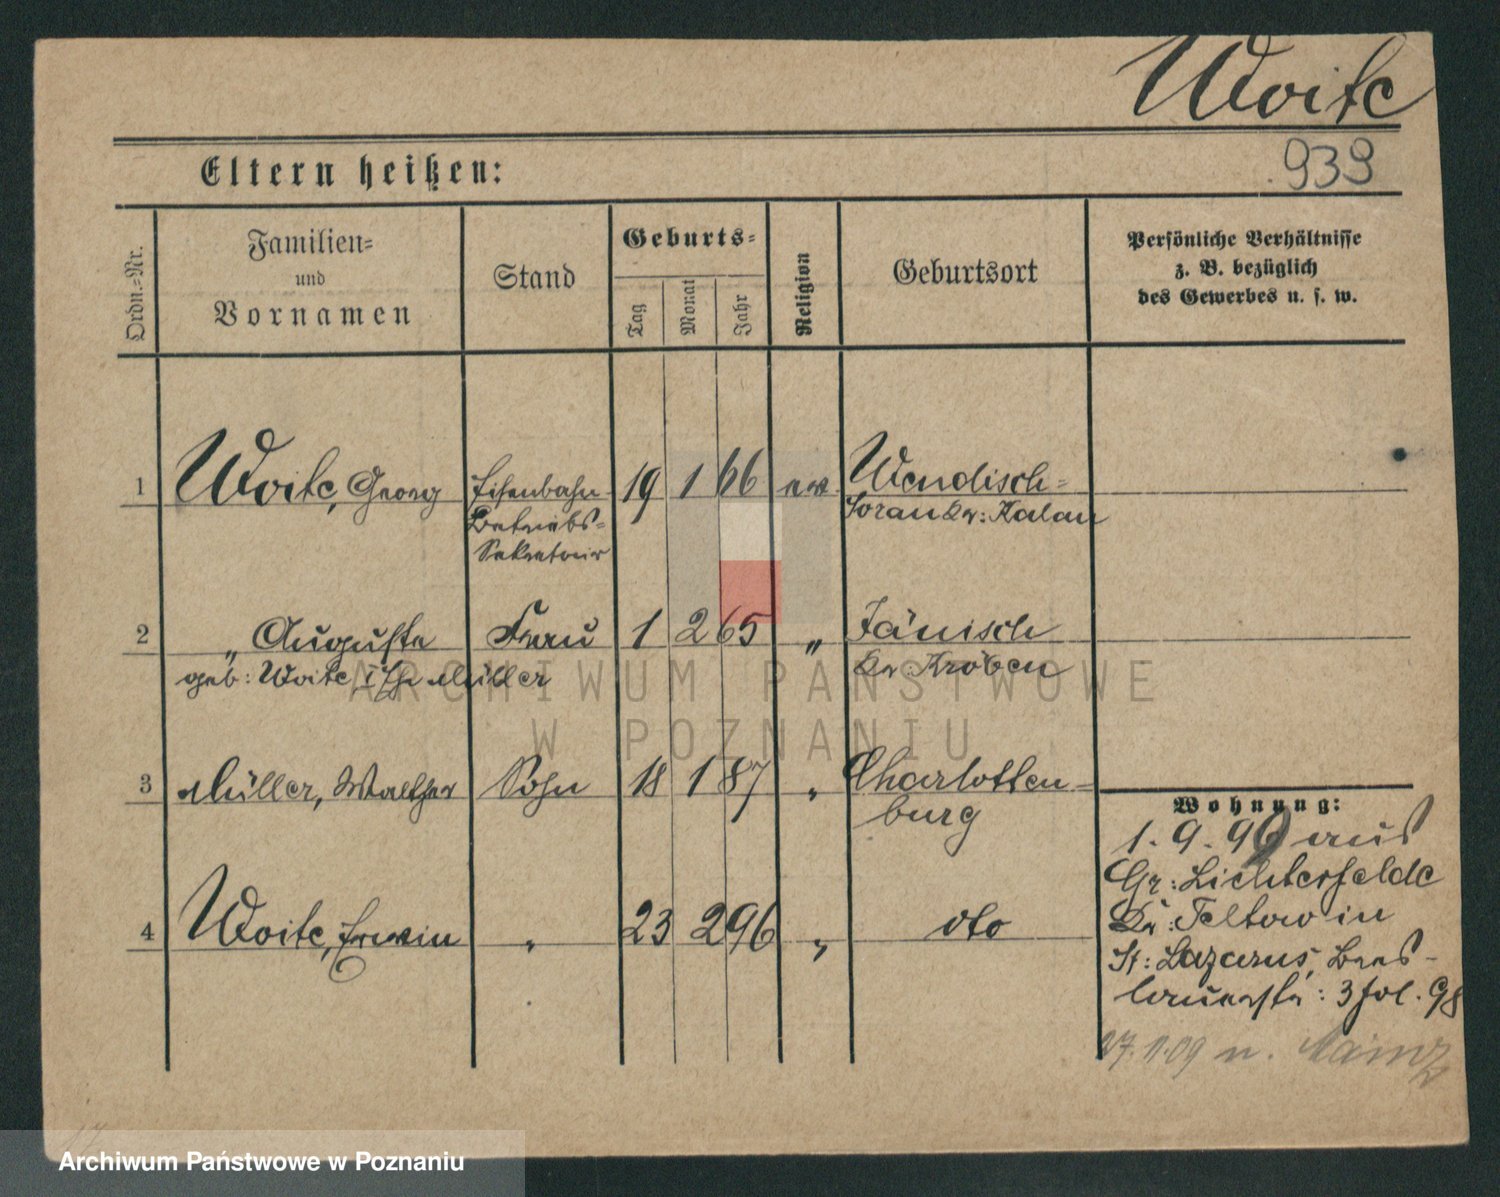 Woite
939
Eltern heißen:
Ordn.-Nr.
Familien-
und
Vornamen
Stand
Geburts-
Tag
Monat
Jahr
Religion
Geburtsort
Persönliche Verhältnisse
z. B. bezüglich
des Gewerbes u. s. w.
1 Woite, Georg Eisenbahn- 19 1 66 ev Wendisch-
Betriebs- Soran Kr: Kalau
Sekretair
2 „ Auguste Frau 1 2 65 „ Jänisch
geb: Woite I Ehe Müller Kr: Kröben
3 Müller, Walther Sohn 18 1 87 „ Charlotten-
burg
Wohnung:
1. 9. 96 aus
Gr: Lichterfelde
4 Woite, Erwin „ 23 2 96 „ dto
Kr: Teltow in
St: Lazarus, Bres-
lauerstr: 3 fol. 98
27.11.09 n. Mainz
ARCHIWUM PAŃSTWOWE
W POZNANIU
Archiwum Państwowe w Poznaniu